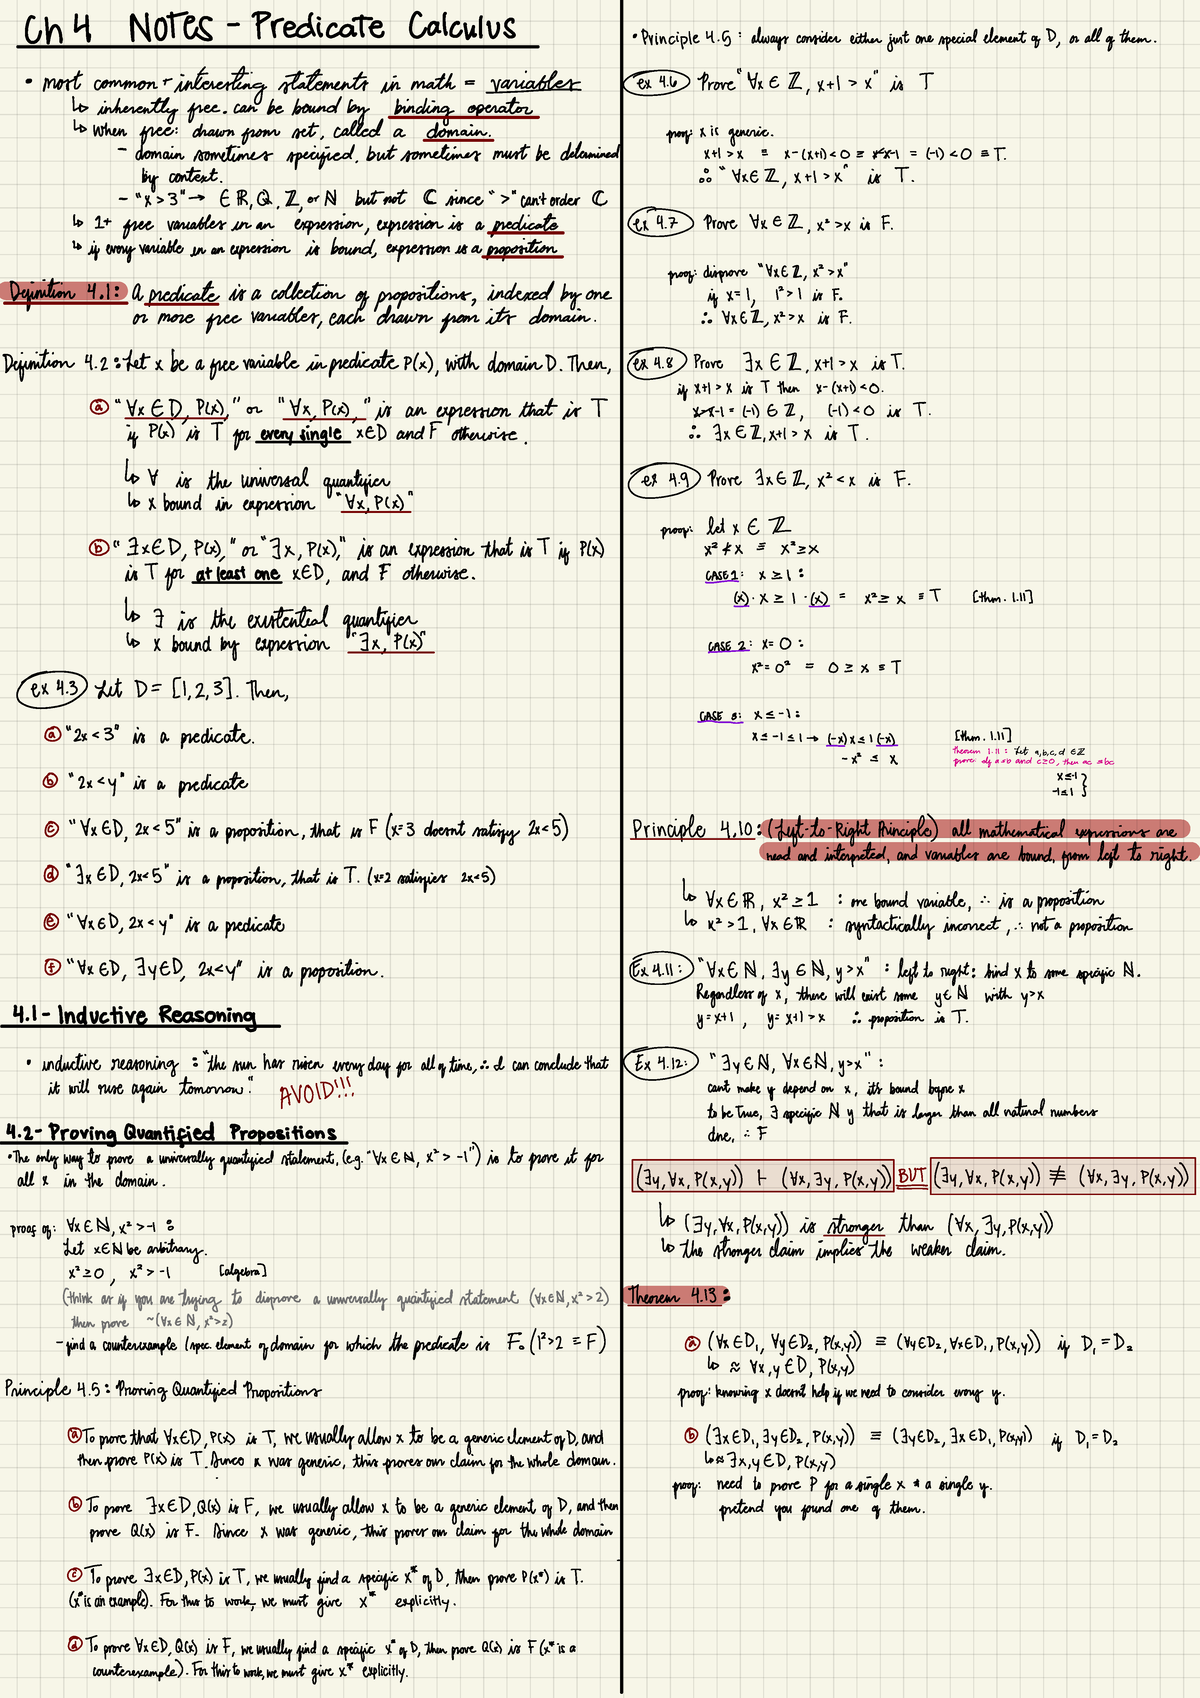 Ch 4 Notes - Predicate Calculus
• most common + interesting statements in math = variables
↳ inherently free. can be bound by binding operator
↳ when free: drawn from set, called a domain.
- domain sometimes specified, but sometimes must be determined
by context.
- "x > 3" → ∈ ℝ, ℚ, ℤ, or ℕ but not ℂ since ">" can't order ℂ
↳ 1+ free variables in an expression, expression is a predicate
↳ if every variable in an expression is bound, expression is a proposition
Definition 4.1: A predicate is a collection of propositions, indexed by one
or more free variables, each drawn from its domain.
Definition 4.2: Let x be a free variable in predicate P(x), with domain D. Then,
ⓐ "∀x ∈ D, P(x)," or "∀x, P(x)," is an expression that is T
if P(x) is T for every single x∈D and F otherwise.
↳ ∀ is the universal quantifier
↳ x bound in expression "∀x, P(x)"
ⓑ "∃x∈D, P(x)," or "∃x, P(x)," is an expression that is T if P(x)
is T for at least one x∈D, and F otherwise.
↳ ∃ is the existential quantifier
↳ x bound by expression "∃x, P(x)"
ex 4.3 Let D = [1,2,3]. Then,
ⓐ "2x < 3" is a predicate.
ⓑ "2x < y" is a predicate
ⓒ "∀x∈D, 2x < 5" is a proposition, that is F (x=3 doesnt satisfy 2x<5)
ⓓ "∃x∈D, 2x<5" is a proposition, that is T. (x=2 satisfies 2x<5)
ⓔ "∀x∈D, 2x<y" is a predicate
ⓕ "∀x∈D, ∃y∈D, 2x<y" is a proposition.
4.1 - Inductive Reasoning
• inductive reasoning : "the sun has risen every day for all of time, ∴ I can conclude that
it will rise again tomorrow". AVOID!!!
4.2 - Proving Quantified Propositions
• The only way to prove a universally quantified statement, (e.g. "∀x ∈ ℕ, x² > -1") is to prove it for
all x in the domain.
proof of: ∀x∈ℕ, x² > -1 :
Let x∈ℕ be arbitrary.
x² ≥ 0 , x² > -1 [algebra]
(think as if you are trying to disprove a universally quantified statement (∀x∈ℕ, x² > 2)
then prove ~(∀x ∈ ℕ, x²>2)
- find a counterexample (spec. element of domain for which the predicate is F. (1²>2 ≡ F)
Principle 4.5: Proving Quantified Propositions
ⓐ To prove that ∀x∈D, P(x) is T, we usually allow x to be a generic element of D, and
then prove P(x) is T. Since x was generic, this proves our claim for the whole domain.
ⓑ To prove ∃x∈D, Q(x) is F, we usually allow x to be a generic element of D, and then
prove Q(x) is F. Since x was generic, this proves our claim for the whole domain
ⓒ To prove ∃x∈D, P(x) is T, we usually find a specific x* of D, then prove P(x*) is T.
(x* is an example). For this to work, we must give x* explicitly.
ⓓ To prove ∀x∈D, Q(x) is F, we usually find a specific x* of D, then prove Q(x) is F (x* is a
counterexample). For this to work, we must give x* explicitly.
• Principle 4.5 : always consider either just one special element of D, or all of them.
ex 4.6 Prove "∀x ∈ ℤ, x+1 > x" is T
proof: x is generic.
x+1 > x ≡ x-(x+1) < 0 ≡ x-x-1 = (-1) < 0 ≡ T.
∴ "∀x∈ℤ, x+1 > x" is T.
ex 4.7 Prove ∀x∈ℤ, x² > x is F.
proof: disprove "∀x∈ℤ, x² > x"
if x=1, 1² > 1 is F.
∴ ∀x∈ℤ, x² > x is F.
ex 4.8 Prove ∃x∈ℤ, x+1 > x is T.
if x+1 > x is T then x-(x+1) < 0.
x-x-1 = (-1) ∈ ℤ, (-1) < 0 is T.
∴ ∃x∈ℤ, x+1 > x is T.
ex 4.9 Prove ∃x∈ℤ, x² < x is F.
proof: let x ∈ ℤ
x² ≮ x ≡ x² ≥ x
CASE 1: x ≥ 1 :
(x)·x ≥ 1·(x) = x² ≥ x ≡ T [thm. 1.11]
CASE 2: x = 0 :
x² = 0² = 0 ≥ x ≡ T
CASE 3: x ≤ -1 :
x ≤ -1 ≤ 1 → (-x)x ≤ 1(-x) [thm. 1.11]
-x² ≤ x
theorem 1.11 : Let a,b,c,d ∈ℤ
prove: if a≤b and c≥0, then ac ≤ bc
x≤-1
-1≤1 }
Principle 4.10: (Left-to-Right Principle) all mathematical expressions are
read and interpreted, and variables are bound, from left to right.
↳ ∀x∈ℝ, x² ≥ 1 : one bound variable, ∴ is a proposition
↳ x² > 1, ∀x∈ℝ : syntactically incorrect, ∴ not a proposition
Ex 4.11: "∀x∈ℕ, ∃y∈ℕ, y>x" : left to right: bind x to some specific ℕ.
Regardless of x, there will exist some y∈ℕ with y>x
y = x+1 , y = x+1 > x ∴ proposition is T.
Ex 4.12: "∃y∈ℕ, ∀x∈ℕ, y>x" :
cant make y depend on x, it's bound before x
to be true, ∃ specific ℕ y that is larger than all natural numbers
dne, ∴ F
(∃y, ∀x, P(x,y)) ⊢ (∀x, ∃y, P(x,y)) BUT (∃y, ∀x, P(x,y)) ≢ (∀x, ∃y, P(x,y))
↳ (∃y, ∀x, P(x,y)) is stronger than (∀x, ∃y, P(x,y))
↳ the stronger claim implies the weaker claim.
Theorem 4.13 :
ⓐ (∀x∈D₁, ∀y∈D₂, P(x,y)) ≡ (∀y∈D₂, ∀x∈D₁, P(x,y)) if D₁ = D₂
↳ ≈ ∀x,y ∈D, P(x,y)
proof: knowing x doesn't help if we need to consider every y.
ⓑ (∃x∈D₁, ∃y∈D₂, P(x,y)) ≡ (∃y∈D₂, ∃x∈D₁, P(x,y)) if D₁ = D₂
↳ ≈ ∃x,y∈D, P(x,y)
proof: need to prove P for a single x & a single y.
pretend you found one of them.